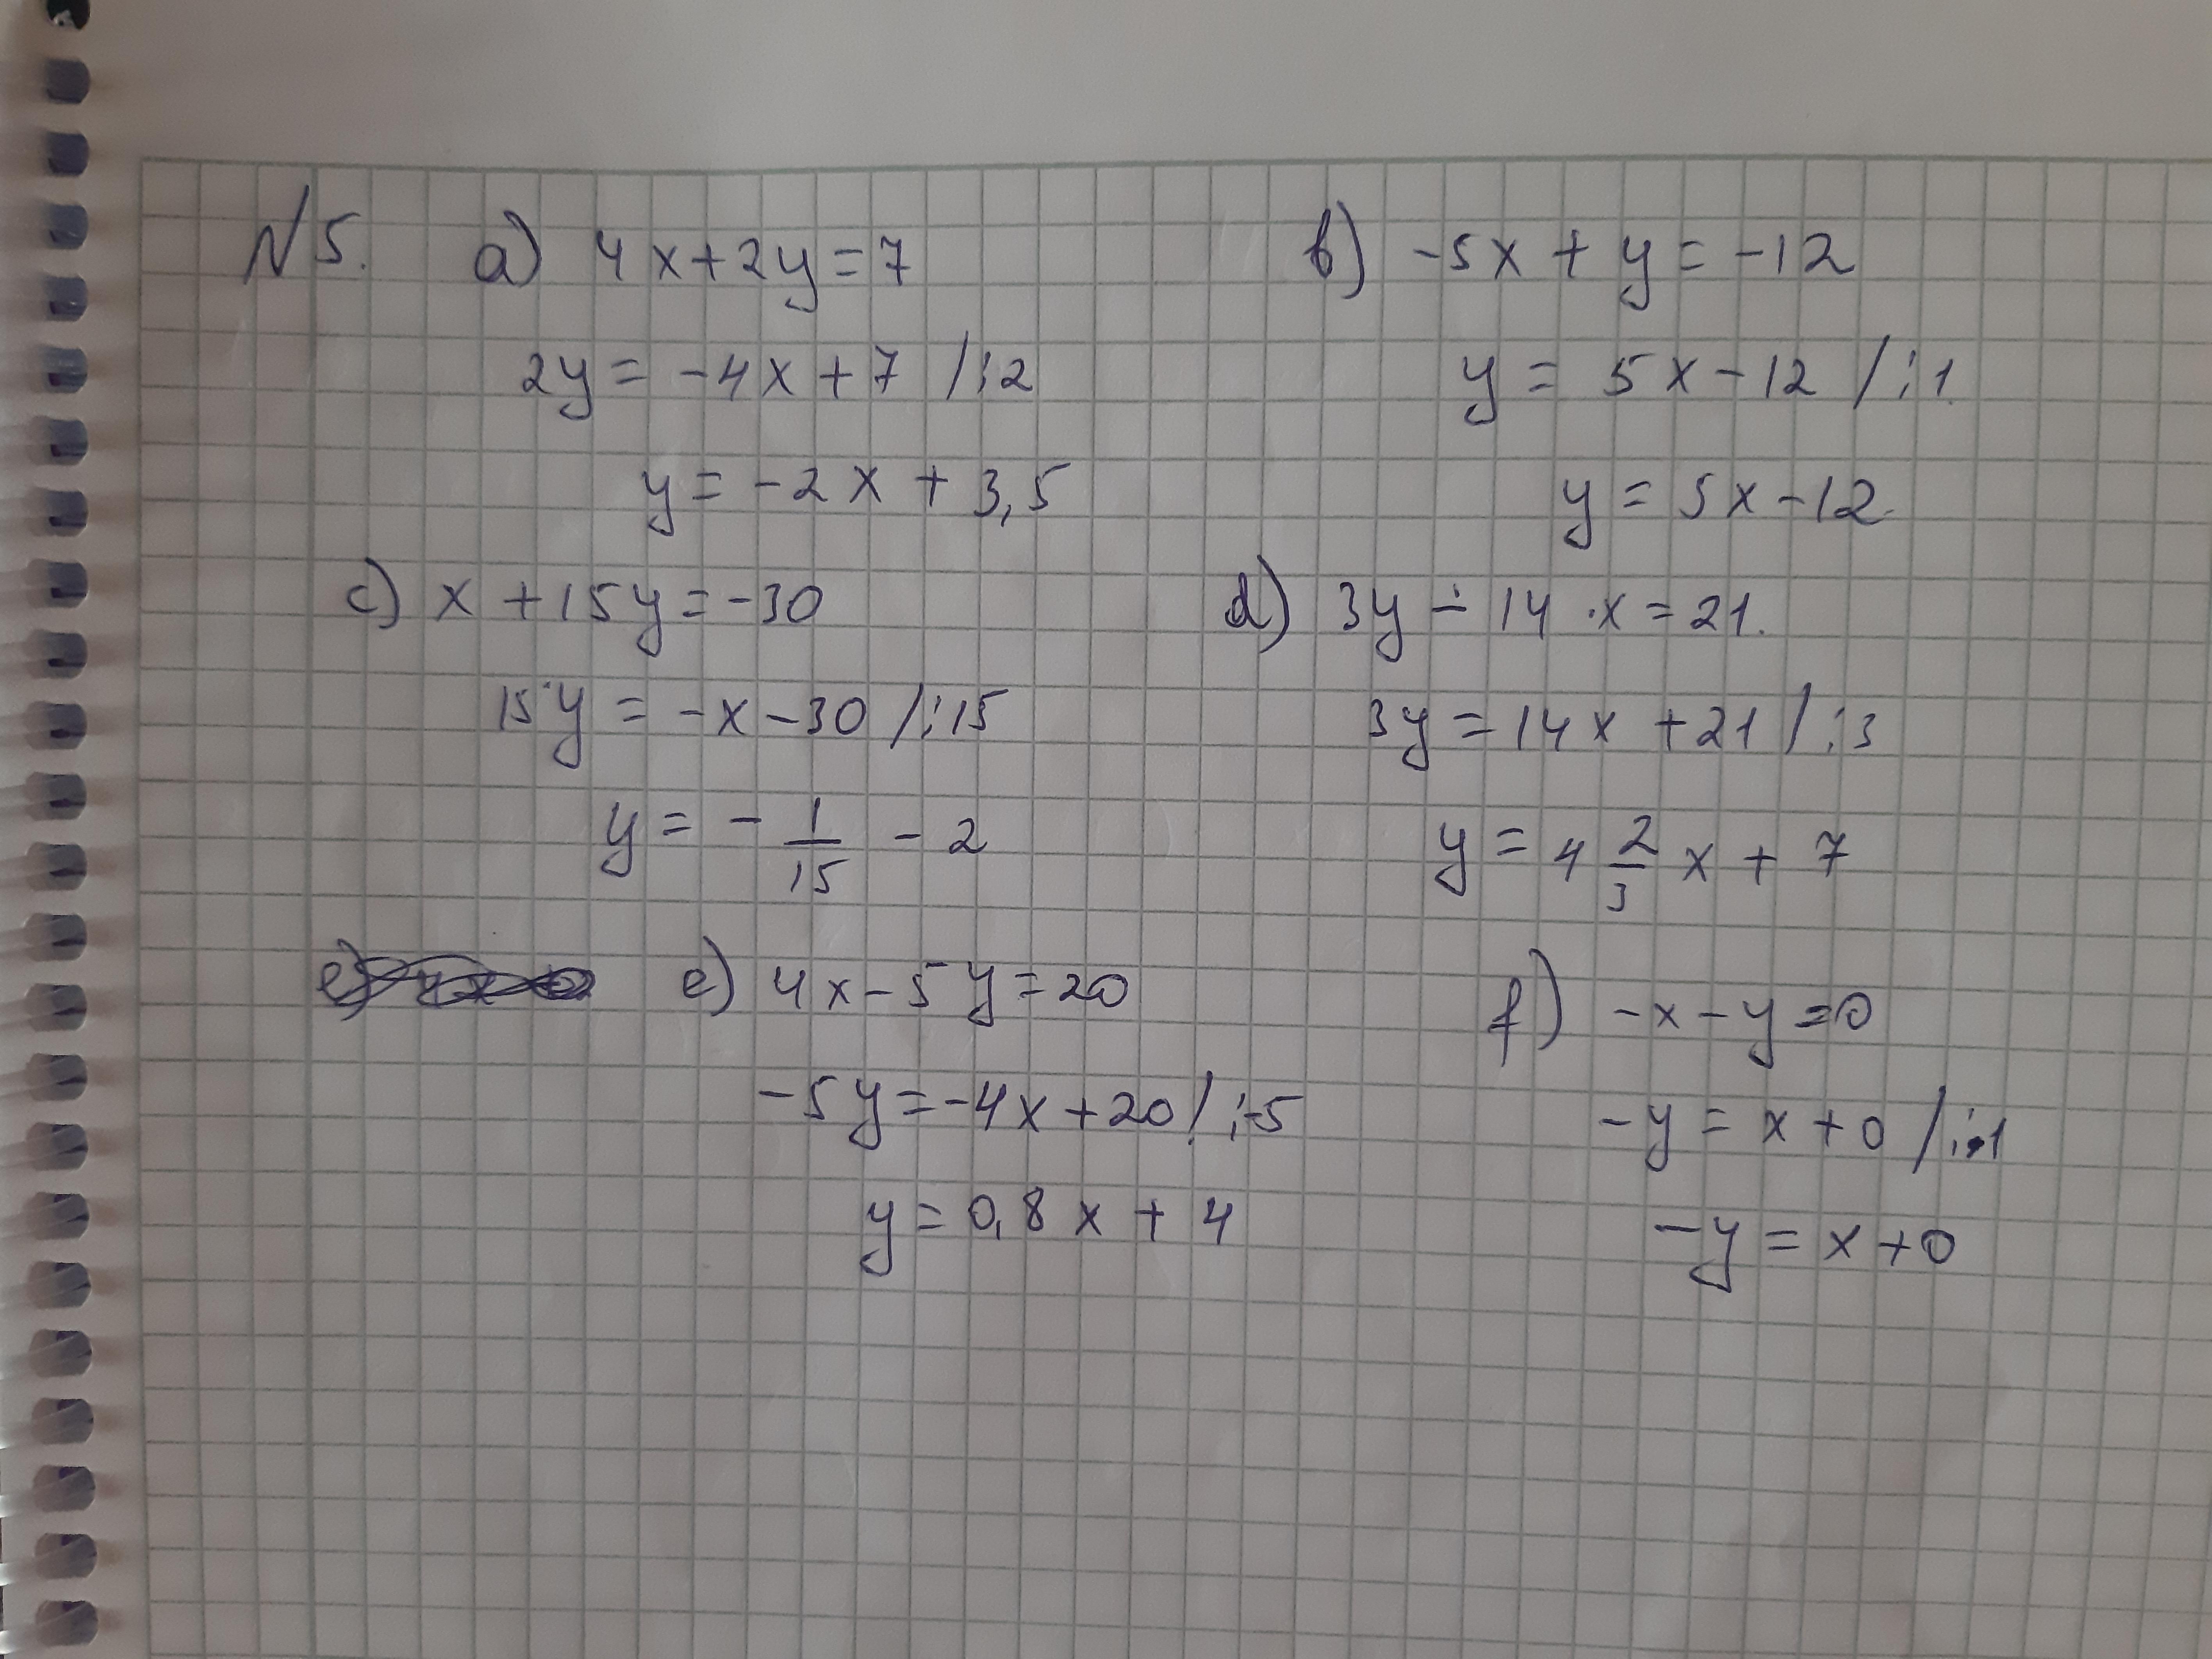 N5. a) 4x+2y=7
2y = -4x+7 /:2
y = -2x + 3,5
b) -5x + y = -12
y = 5x-12 /:1.
y = 5x-12.
c) x +15y=-30
15y = -x-30 /:15
y = - 1/15 - 2
d) 3y - 14 ·x = 21.
3y = 14x +21 / :3
y = 4 2/3 x + 7
e) 4x-5y=20
-5y=-4x+20/:-5
y = 0,8x + 4
f) -x-y=0
-y = x+0 /:-1
-y = x+0